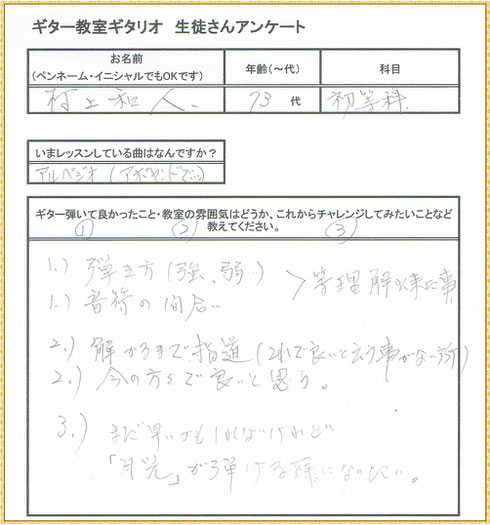 ギター教室ギタリオ 生徒さんアンケート
お名前
(ペンネーム・イニシャルでもOKです)
年齢(〜代)
科目
村上和人
73 代
初等科
いまレッスンしている曲はなんですか?
アルペジオ(アポヤンドで)
ギター弾いて良かったこと・教室の雰囲気はどうか、これからチャレンジしてみたいことなど
教えてください。
① ② ③
1.) 弾き方(強、弱) > 等理解出来た事
1.) 音符の間合い
2.) 解かるまで指導(これで良いと云う事がない所)
2.) 今の方々で良いと思う。
3.) まだ早いかもしれないけれど
「月光」が弾ける様になりたい。